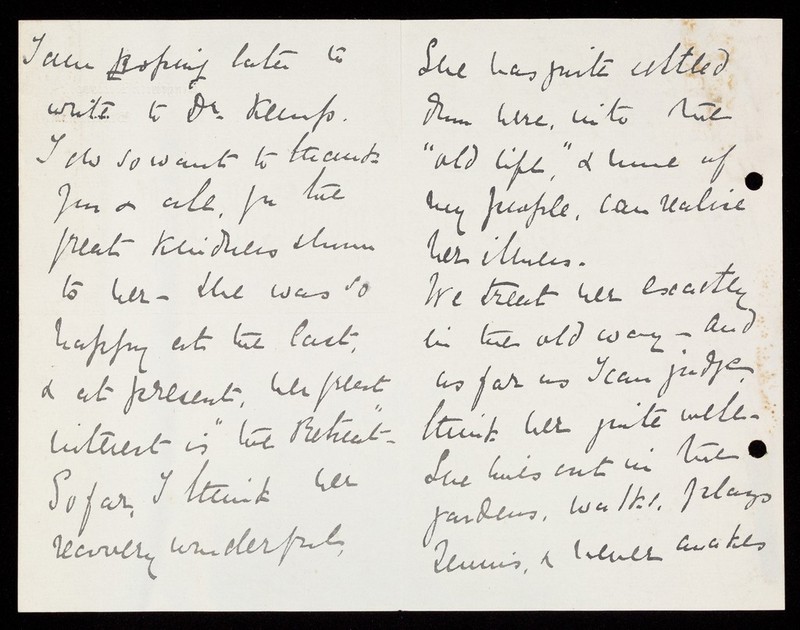 I am hoping later to
write to Dr. Kemp.
I do so want to thank
you & all, for the
great kindness shewn
to her - She was so
happy at the last,
& at present, her great
interest is "the Retreat" -
So far, I think her
recovery wonderful,
She has quite settled
down here, into the
"old life," & none of
my people, can realise
her illness.
We treat her exactly
in the old way - and
as far as I can judge,
think her quite well -
She lives out in the
gardens, walks, plays
Tennis, & never awakes